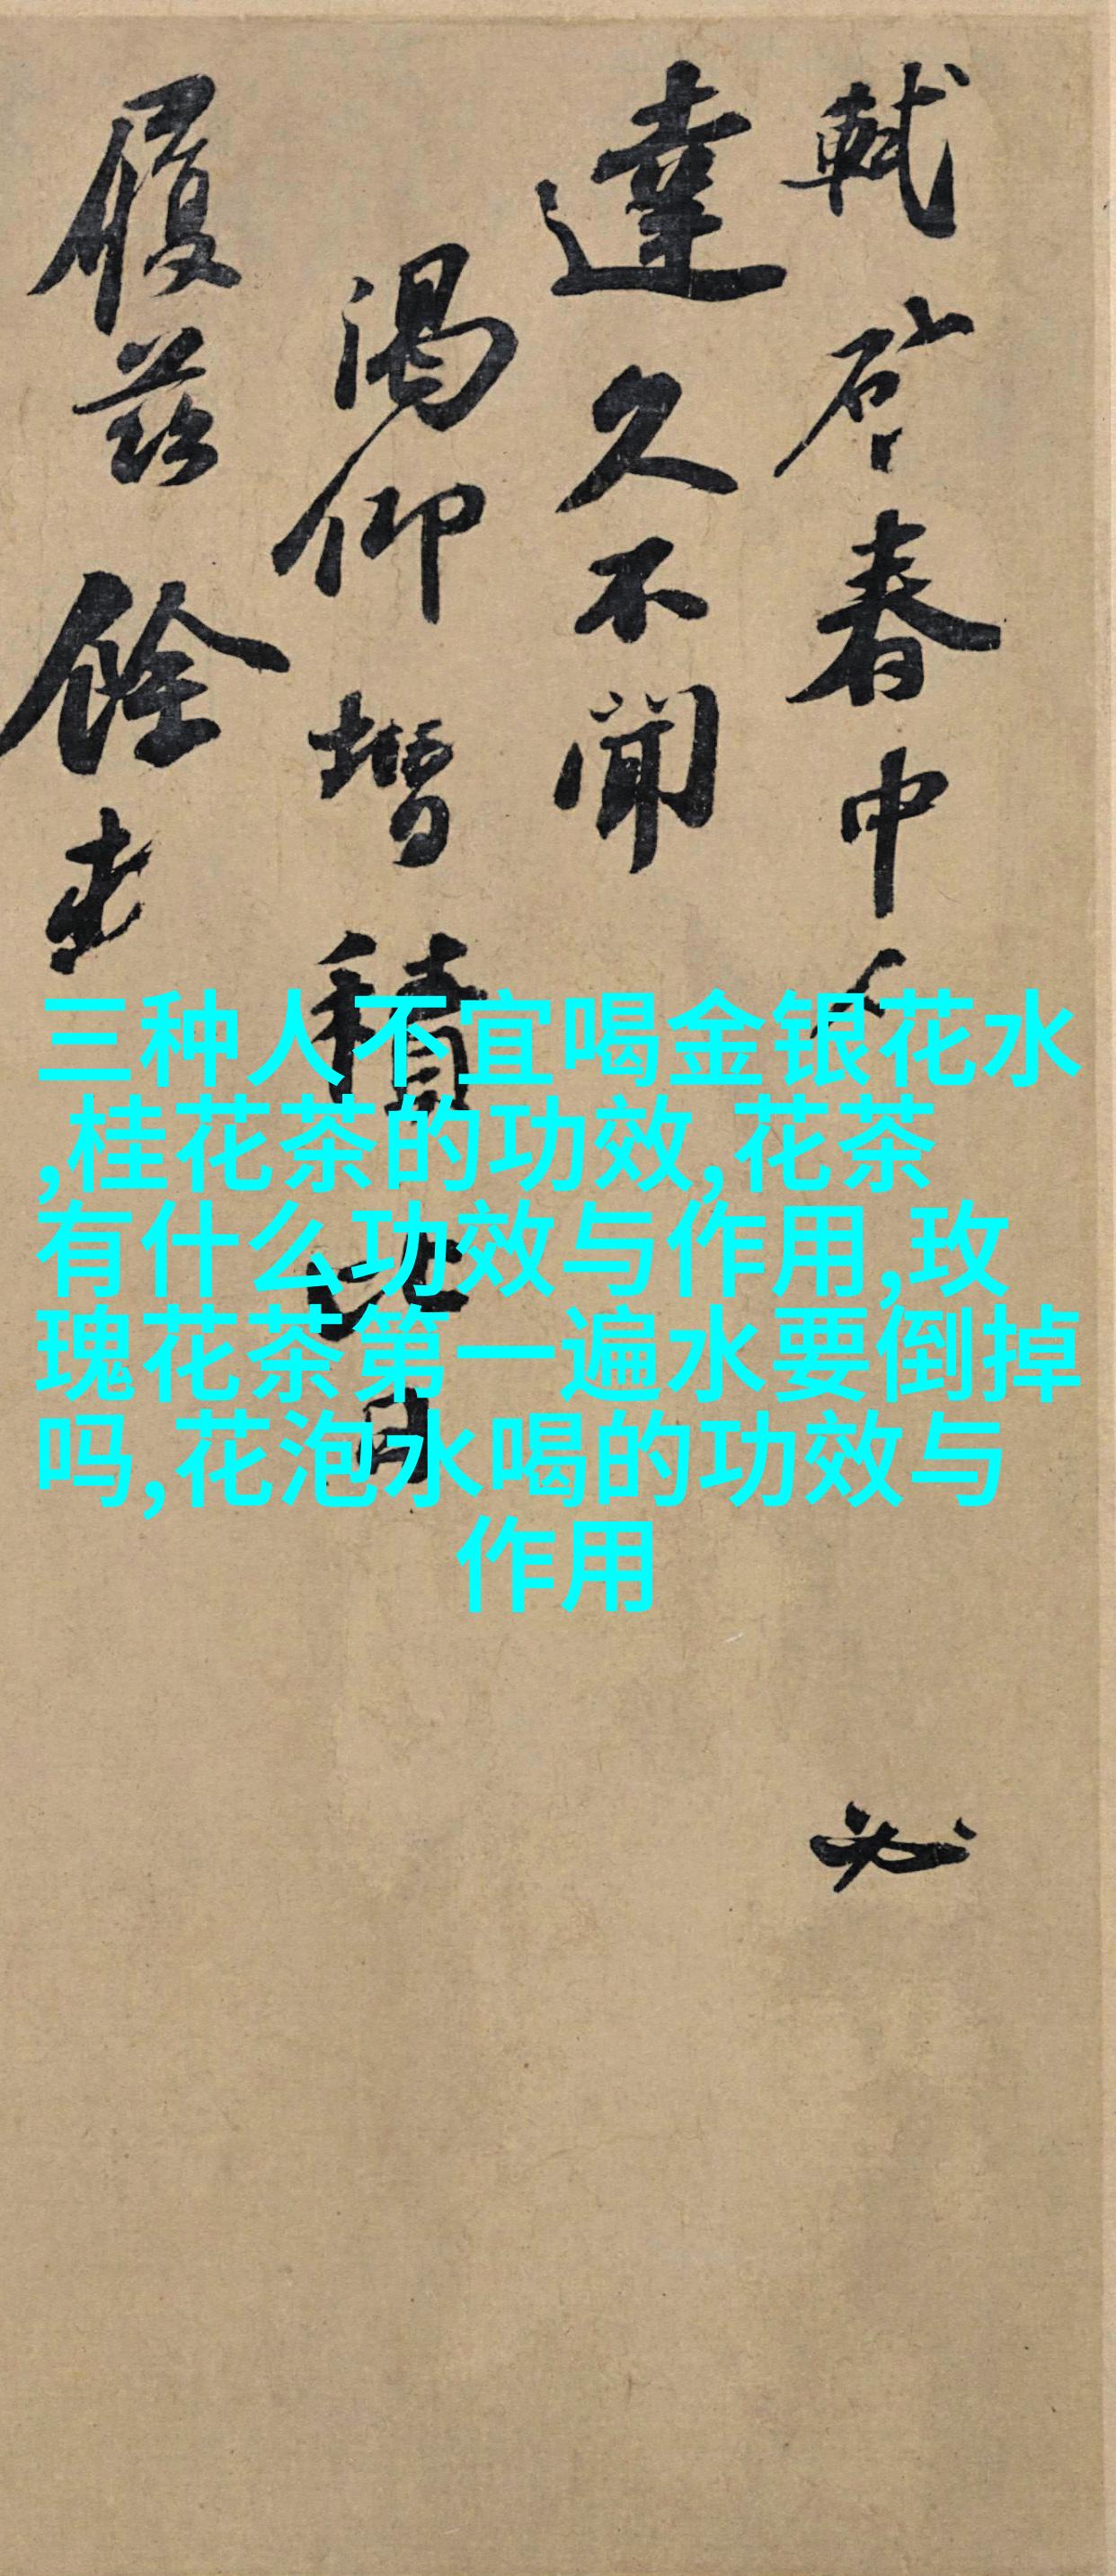 軾啓春中
必
達久不聞
渴仰增積比日
履茲餘
三种人不宜喝金银花水
,桂花茶的功效,花茶
有什么功效与作用,玫
瑰花茶第一遍水要倒掉
吗,花泡水喝的功效与
作用